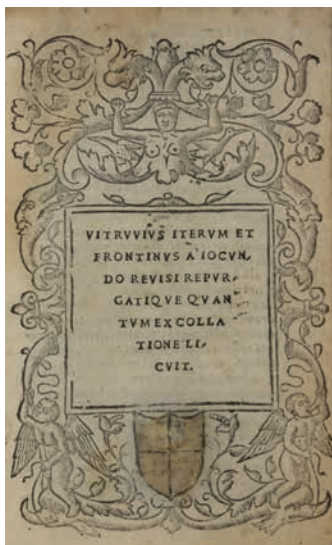 VITRVVIVS ITERVM ET
FRONTINVS A' IOCVN,
DO REVISI REPVR,
GATIQVE QVAN
TVM EX COLLA
TIONE LI,
CVIT.